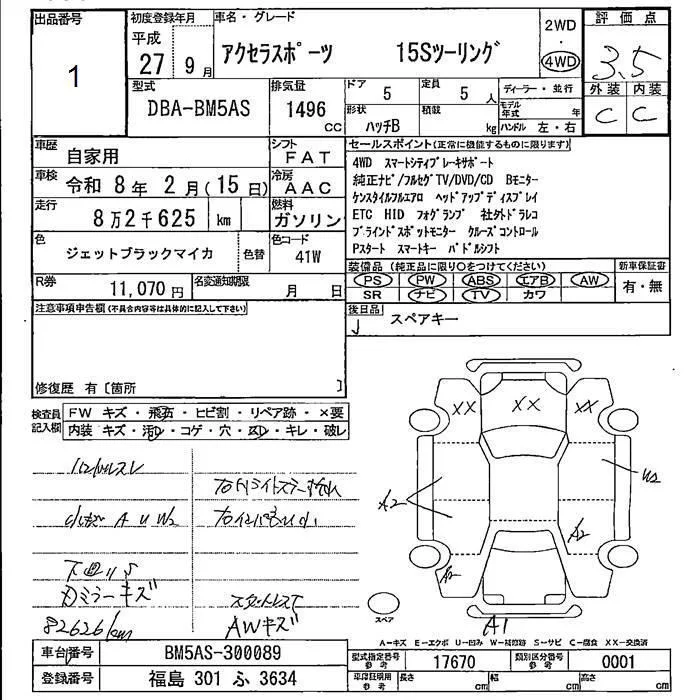 出品番号
1
初度登録年月
平成
27 9 月
車名・グレード
アクセラスポーツ 15Sツーリング
2WD
・
4WD
評価点
3.5
外装 内装
C C
型式
DBA-BM5AS
排気量
1496
CC
ドア
5
定員
5 人
形状
ハッチB
積載
kg
ディーラー・並行
モデル年式 年
ハンドル 左・右
車歴
自家用
シフト
FAT
車検
令和 8年 2月(15日)
冷房
AAC
走行
8万2千625 km
燃料
ガソリン
色
ジェットブラックマイカ
色替
色コード
41W
R券
11,070円
名変通知期限
月 日
セールスポイント(正常に機能するものに限ります)
4WD スマートシティブレーキサポート
純正ナビ/フルセグTV/DVD/CD Bモニター
ケンスタイルフルエアロ ヘッドアップディスプレイ
ETC HID フォグランプ 社外ドラレコ
ブラインドスポットモニター クルーズコントロール
Pスタート スマートキー パドルシフト
装備品 (純正品に限り○をつけてください)
PS PW ABS エアB AW
SR ナビ TV カワ
新車保証書
有・無
後日品
スペアキー
注意事項申告欄(不具合内容等は具体的に記入して下さい)
修復歴 有〔箇所 〕
検査員記入欄
FW キズ・飛石・ヒビ割・リペア跡・×要
内装 キズ・汚レ・コゲ・穴・スレ・キレ・破レ
小キズ A U W2
下回りS
ミラーキズ
82626km
AWキズ
XX XX XX
A2
W2
A2
A2
A1
スペア
A-キズ E-エクボ U-凹み W-補修跡 S-サビ C-腐食 XX-交換済
車台番号
BM5AS-300089
登録番号
福島 301 ふ 3634
型式指定番号
参考
17670
類別区分番号
参考
0001
車庫証明用
参考
長さ cm
幅 cm
高さ cm